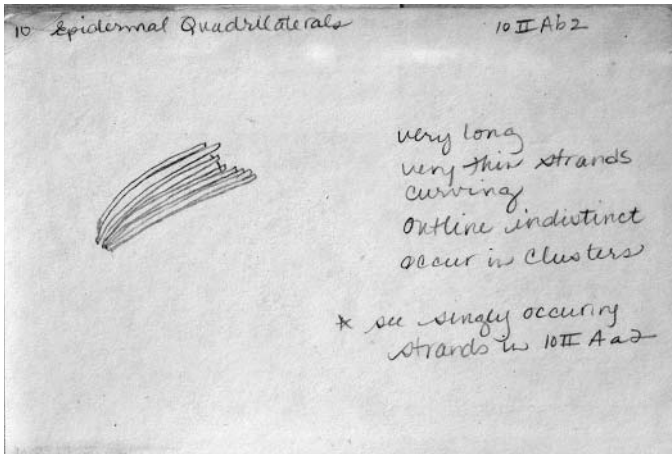 10 Epidermal Quadrilaterals 10 II Ab2
very long
very thin strands
curving
outline indistinct
occur in clusters
* see singly occuring
strands in 10 II Aa2